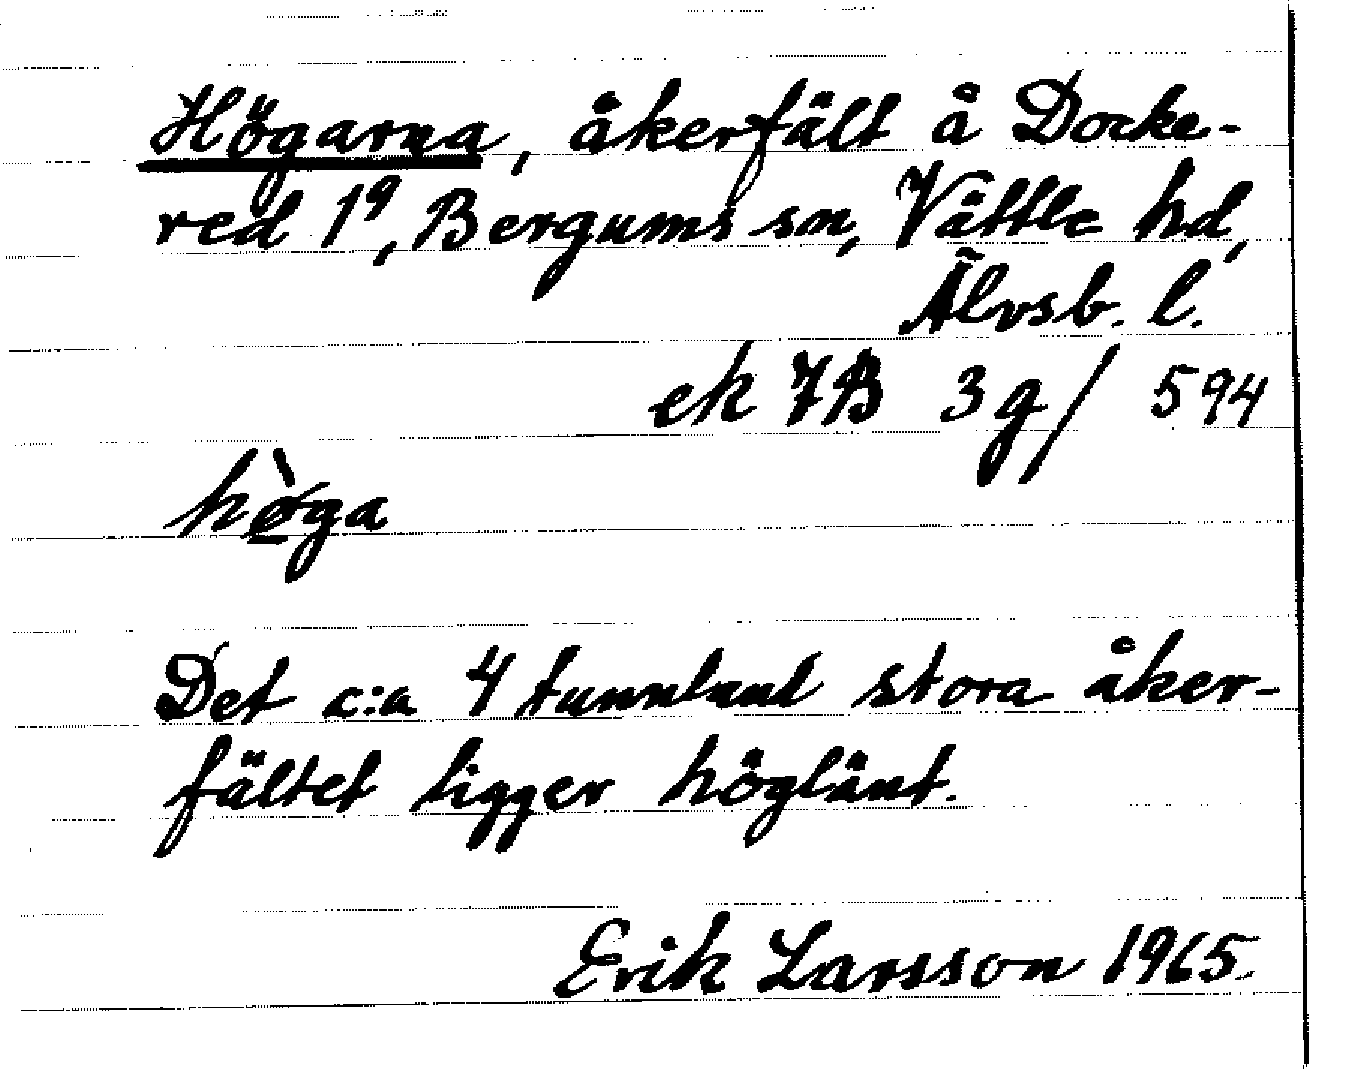 Högarna, åkerfält å Docke-
red 1⁹, Bergums sn, Vättle hd,
Älvsb. l.
ek 7B 3g/ 594
hø̀ga
Det c:a 4 tunnland stora åker-
fältet ligger höglänt.
Erik Larsson 1965.